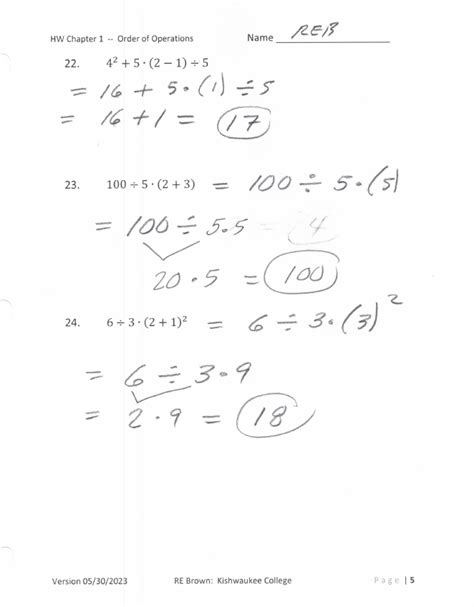 HW Chapter 1 -- Order of Operations Name REB
22. 4² + 5 · (2 − 1) ÷ 5
= 16 + 5 · (1) ÷ 5
= 16 + 1 = 17
23. 100 ÷ 5 · (2 + 3) = 100 ÷ 5 · (5)
= 100 ÷ 5.5 = 4
20 · 5 = 100
24. 6 ÷ 3 · (2 + 1)² = 6 ÷ 3 · (3)²
= 6 ÷ 3 · 9
= 2 · 9 = 18
Version 05/30/2023 RE Brown: Kishwaukee College Page | 5